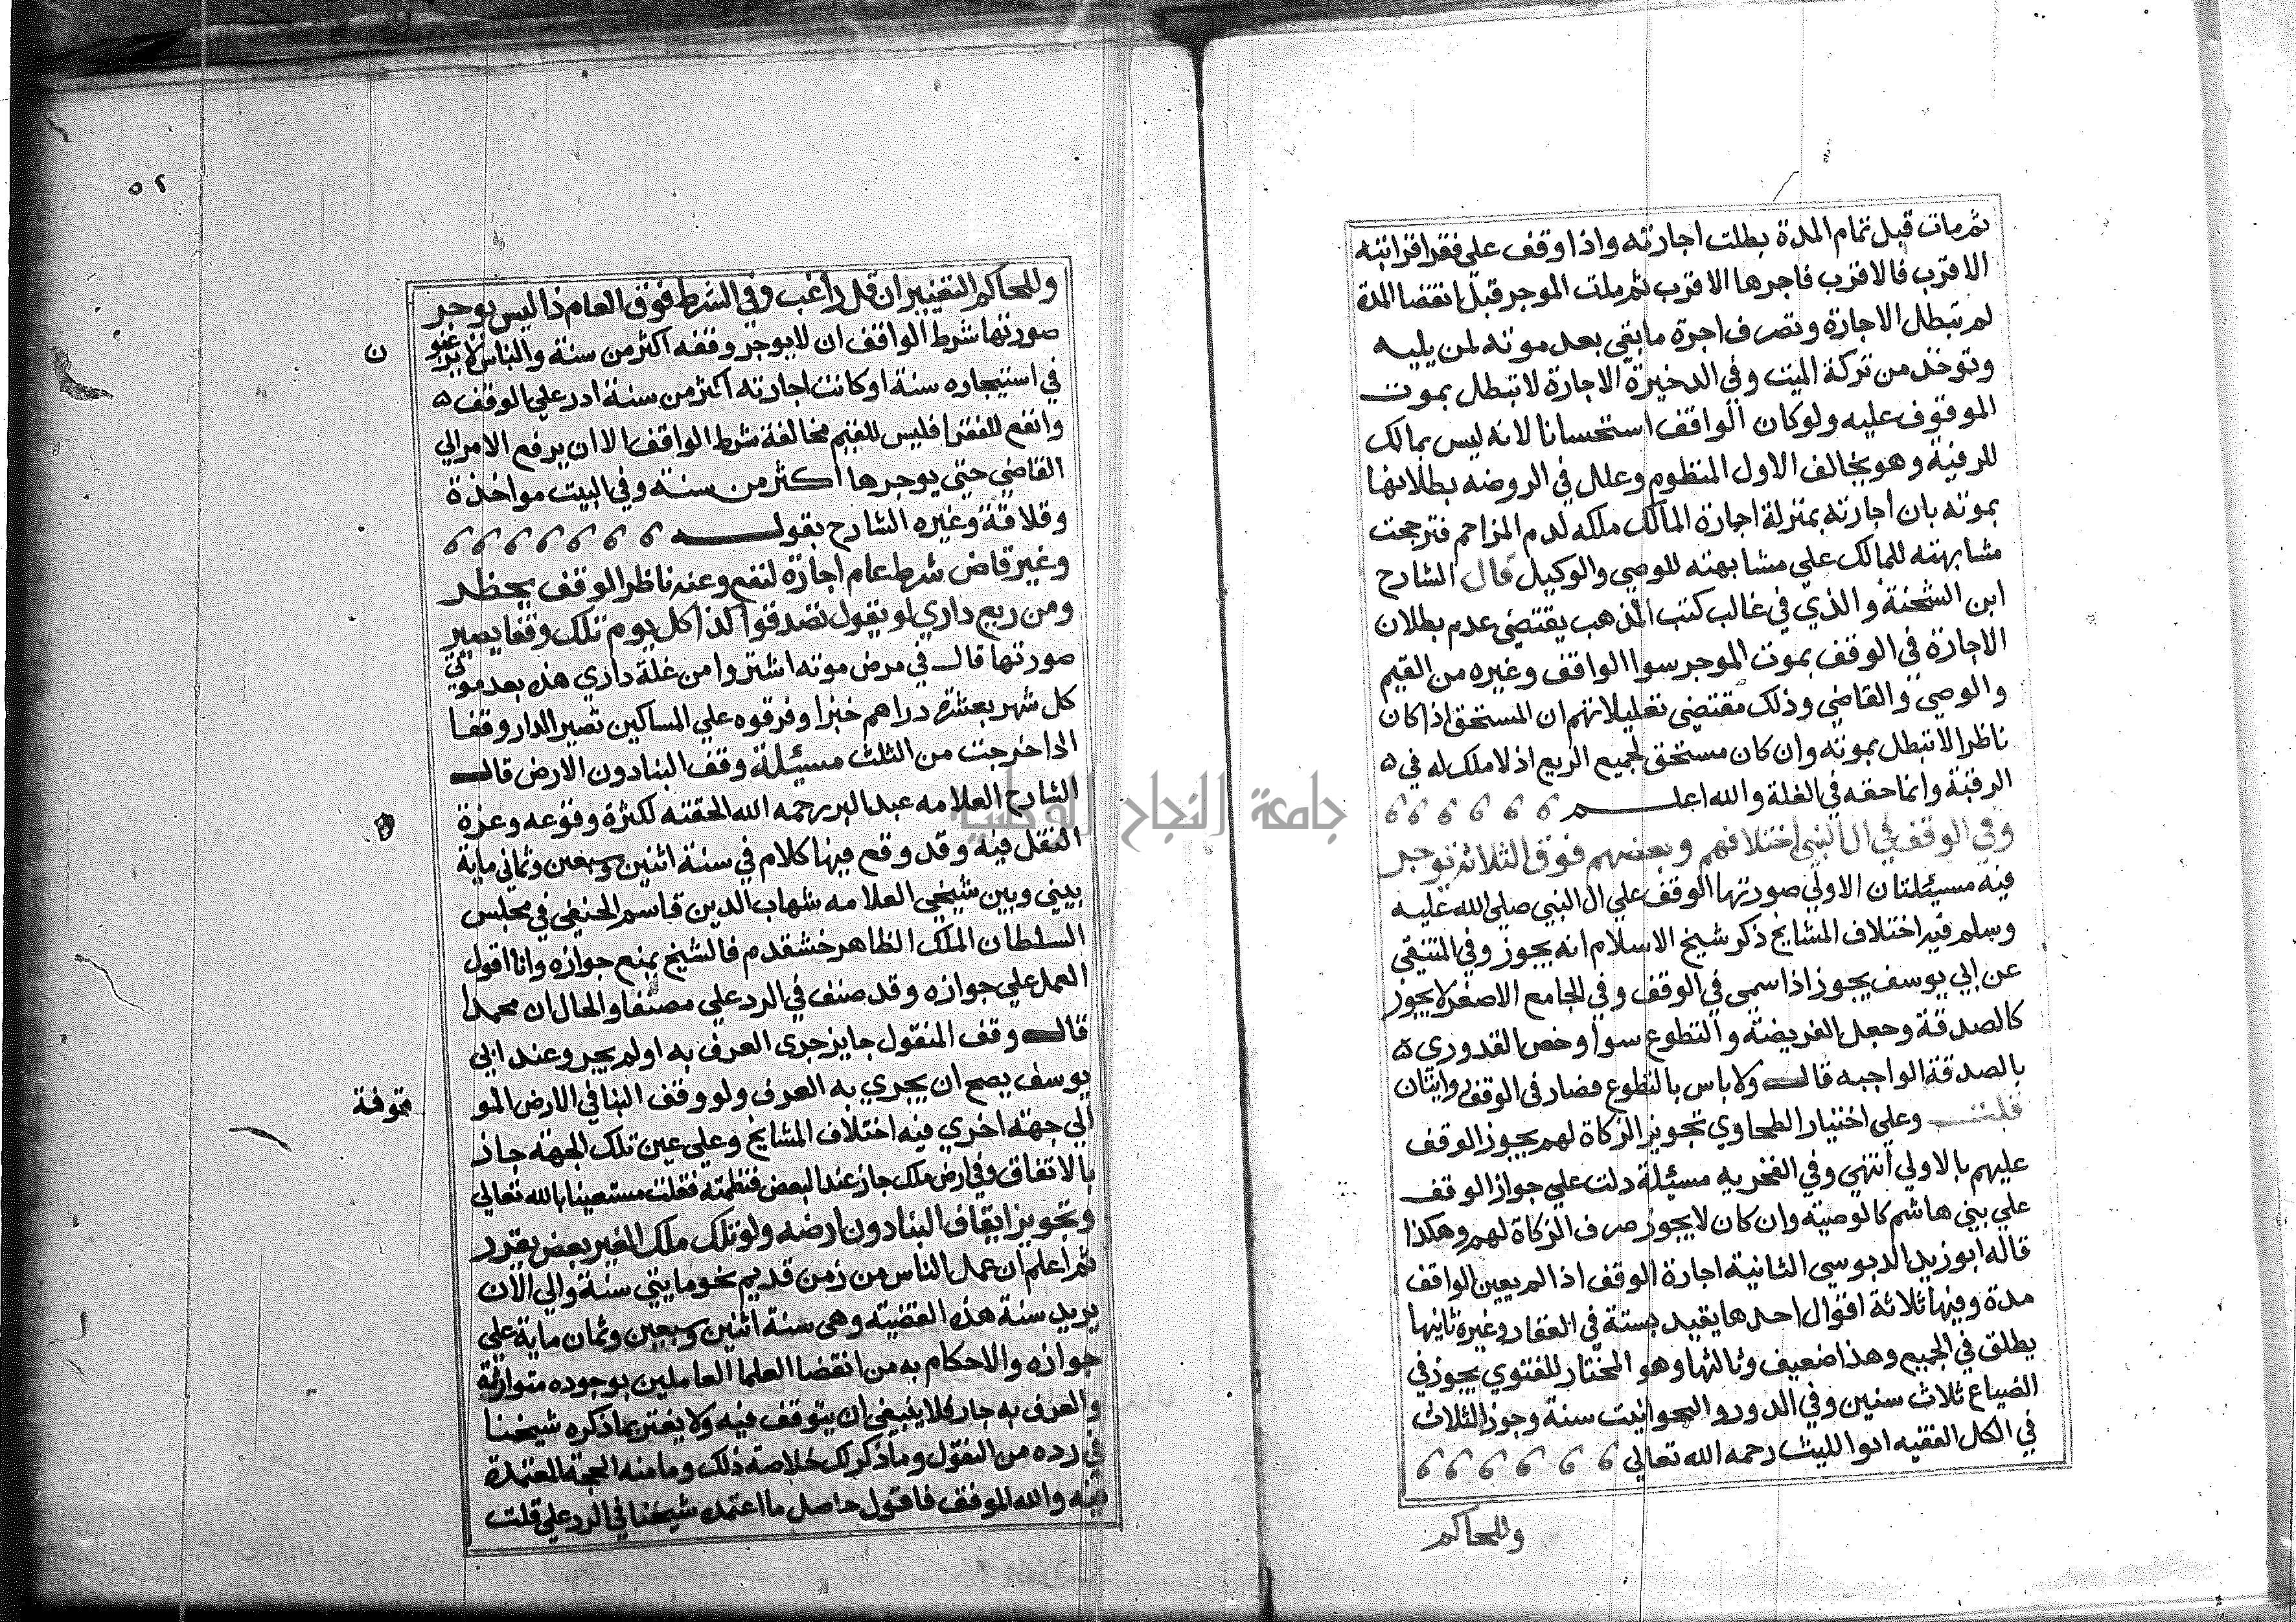 ثم مات قبل تمام المدة بطلت اجارته واذا وقف علي فقرا قرابته
الاقرب فالاقرب فاجرها الاقرب ثم مات الموجر قبل انقضا المدة
لم تبطل الاجارة وتصرف اجرة ما بقي بعد موته لمن يليه
وتوخذ من تركة الميت وفي الدخيرة الاجارة لا تبطل بموت
الموقوف عليه ولو كان الواقف استحسانا لانه ليس بمالك
للرقبة وهو يخالف الاول المنظوم وعلل في الروضه بطلانها
بموته بان اجارته بمنزلة اجارة المالك ملكه لدم المزاحم فترجحت
مشابهته للمالك علي مشابهته للوصي والوكيل قال الشارح
ابن الشحنة والذي في غالب كتب المذهب يقتضي عدم بطلان
الاجازة في الوقف بموت الموجر سوا الواقف وغيره من القيم
والوصي والقاضي وذلك مقتضي تعليلاتهم ان المستحق اذا كان
ناظرا لا تبطل بموته وان كان مستحق لجميع الريع اذ لا ملك له في
الرقبة وانما حقه في الغلة والله اعلم
وفي الوقف في ال النبي اختلافهم وبعضهم فوق الثلاثة توجر
فيه مسيلتان الاولي صورتها الوقف علي ال النبي صلي الله عليه
وسلم فيه اختلاف المشايخ ذكر شيخ الاسلام انه يجوز وفي المنتقي
عن ابي يوسف يجوز اذا سمي في الوقف وفي الجامع الاصغر لا يجوز
كالصدقة وجعل الفريضة والتطوع سوا وخص القدوري
بالصدقة الواجبه قال ولا باس بالتطوع فصار في الوقف روايتان
قلت وعلي اختيار الطحاوي تجويز الزكاة لهم يجوز الوقف
عليهم بالاولي انتهي وفي الفخريه مسيلة دلت علي جواز الوقف
علي بني هاشم كالوصية وان كان لا يجوز صرف الزكاة لهم وهكذا
قاله ابو زيد الدبوسي الثانية اجارة الوقف اذا لم يعين الواقف
مدة وفيها ثلاثة اقوال احدها يقيد بسنة في العقار وغيره ثانيها
يطلق في الجميع وهذا ضعيف وثالثها وهو المختار للفتوي يجوز في
الضياع ثلاث سنين وفي الدور والحوانيت سنة وجوز الثلاث
في الكل الفقيه ابوا الليث رحمه الله تعالي
وللحاكم
٥٢
وللحاكم التغيير ان قل راغب وفي الشرط فوق العام ذا ليس يوجر
صورتها شرط الواقف ان لا يوجر وقفه اكثر من سنة والناس لا يرغبو
ن
في استيجاره سنة او كانت اجارته اكثر من سنة ادر علي الوقف
وانفع للفقرا فليس للقيم مخالفة شرط الواقف الا ان يرفع الامر الي
القاضي حتي يوجرها اكثر من سنة وفي البيت مواخذة
وقلاقة وغيره الشارح بقوله
وغير قاض شرط عام اجارة لنفع وعنه ناظر الوقف يحظر
ومن ريع داري لو يقول تصدقوا كذا كل يوم تلك وقفا يصير
صورتها قال في مرض موته اشتروا من غلة داري هذه بعد موتي
كل شهر بعشرة دراهم خبزا وفرقوه علي المساكين تصير الدار وقفا
اذا خرجت من الثلث مسيلة وقف البنا دون الارض قال
الشارح العلامه عبد البر رحمه الله الحقته لكثرة وقوعه وعزة
النقل فيه وقد وقع فيها كلام في سنة اثنين وسبعين وثماني ماية
بيني وبين شيخي العلامه شهاب الدين قاسم الحنفي في مجلس
السلطان الملك الظاهر خشقدم فالشيخ يمنع جوازه وانا اقول
العمل علي جوازه وقد صنف في الرد علي مصنفا والحال ان محمدا
قال وقف المنقول جايز جري العرف به او لم يجر وعند ابي
يوسف يصح ان يجري به العرف ولو وقف البنا في الارض المو
قوفة
الي جهة اخري فيه اختلاف المشايخ وعلي عين تلك الجهة جاز
بالاتفاق وفي ارض ملك جاز عند البعض فنظمته فقلت مستعينا بالله تعالي
وتجويز ايقاف البنا دون ارضه ولو تلك ملك الغير بعض يقرر
ثم اعلم ان عمل الناس من زمن قديم نحو مايتي سنة والي الان
يريد سنة هذه القضية وهي سنة اثنين وسبعين وثمان ماية علي
جوازه والاحكام به من انقضا العلما العاملين بوجوده متواترة
والعرف به جار فلا ينبغي ان يتوقف فيه ولا يغتر بما ذكره شيخنا
في رده من النقول وما ذكر لك خلاصة ذلك وما منه الحجة المعتمدة
فيه والله الموفق فاقول حاصل ما اعتمده شيخنا في الرد علي قلت
جامعة النجاح الوطنية